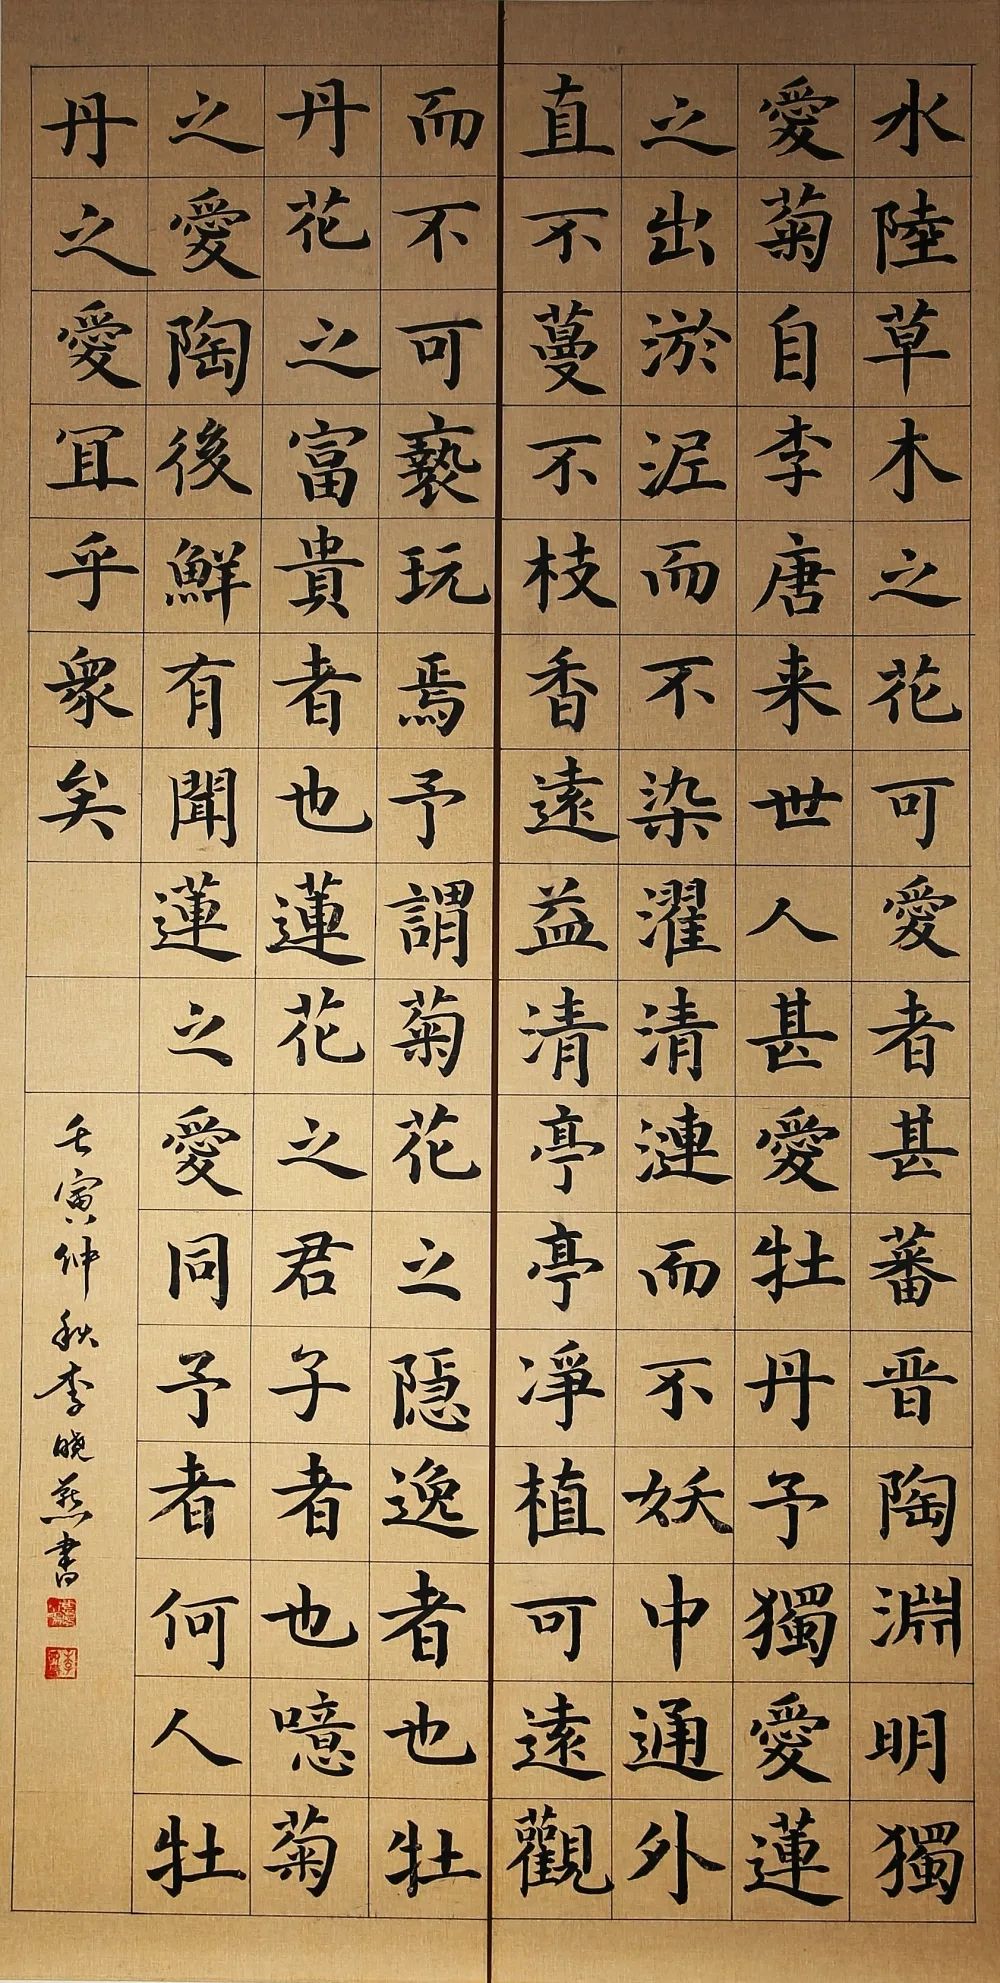 水陸草木之花可愛者甚蕃晋陶淵明獨
愛菊自李唐来世人甚愛牡丹予獨愛蓮
之出淤泥而不染濯清漣而不妖中通外
直不蔓不枝香遠益清亭亭凈植可遠觀
而不可褻玩焉予謂菊花之隱逸者也牡
丹花之富貴者也蓮花之君子者也噫菊
之愛陶後鮮有聞蓮之愛同予者何人牡
丹之愛宜乎衆矣
壬寅仲秋李曉燕書